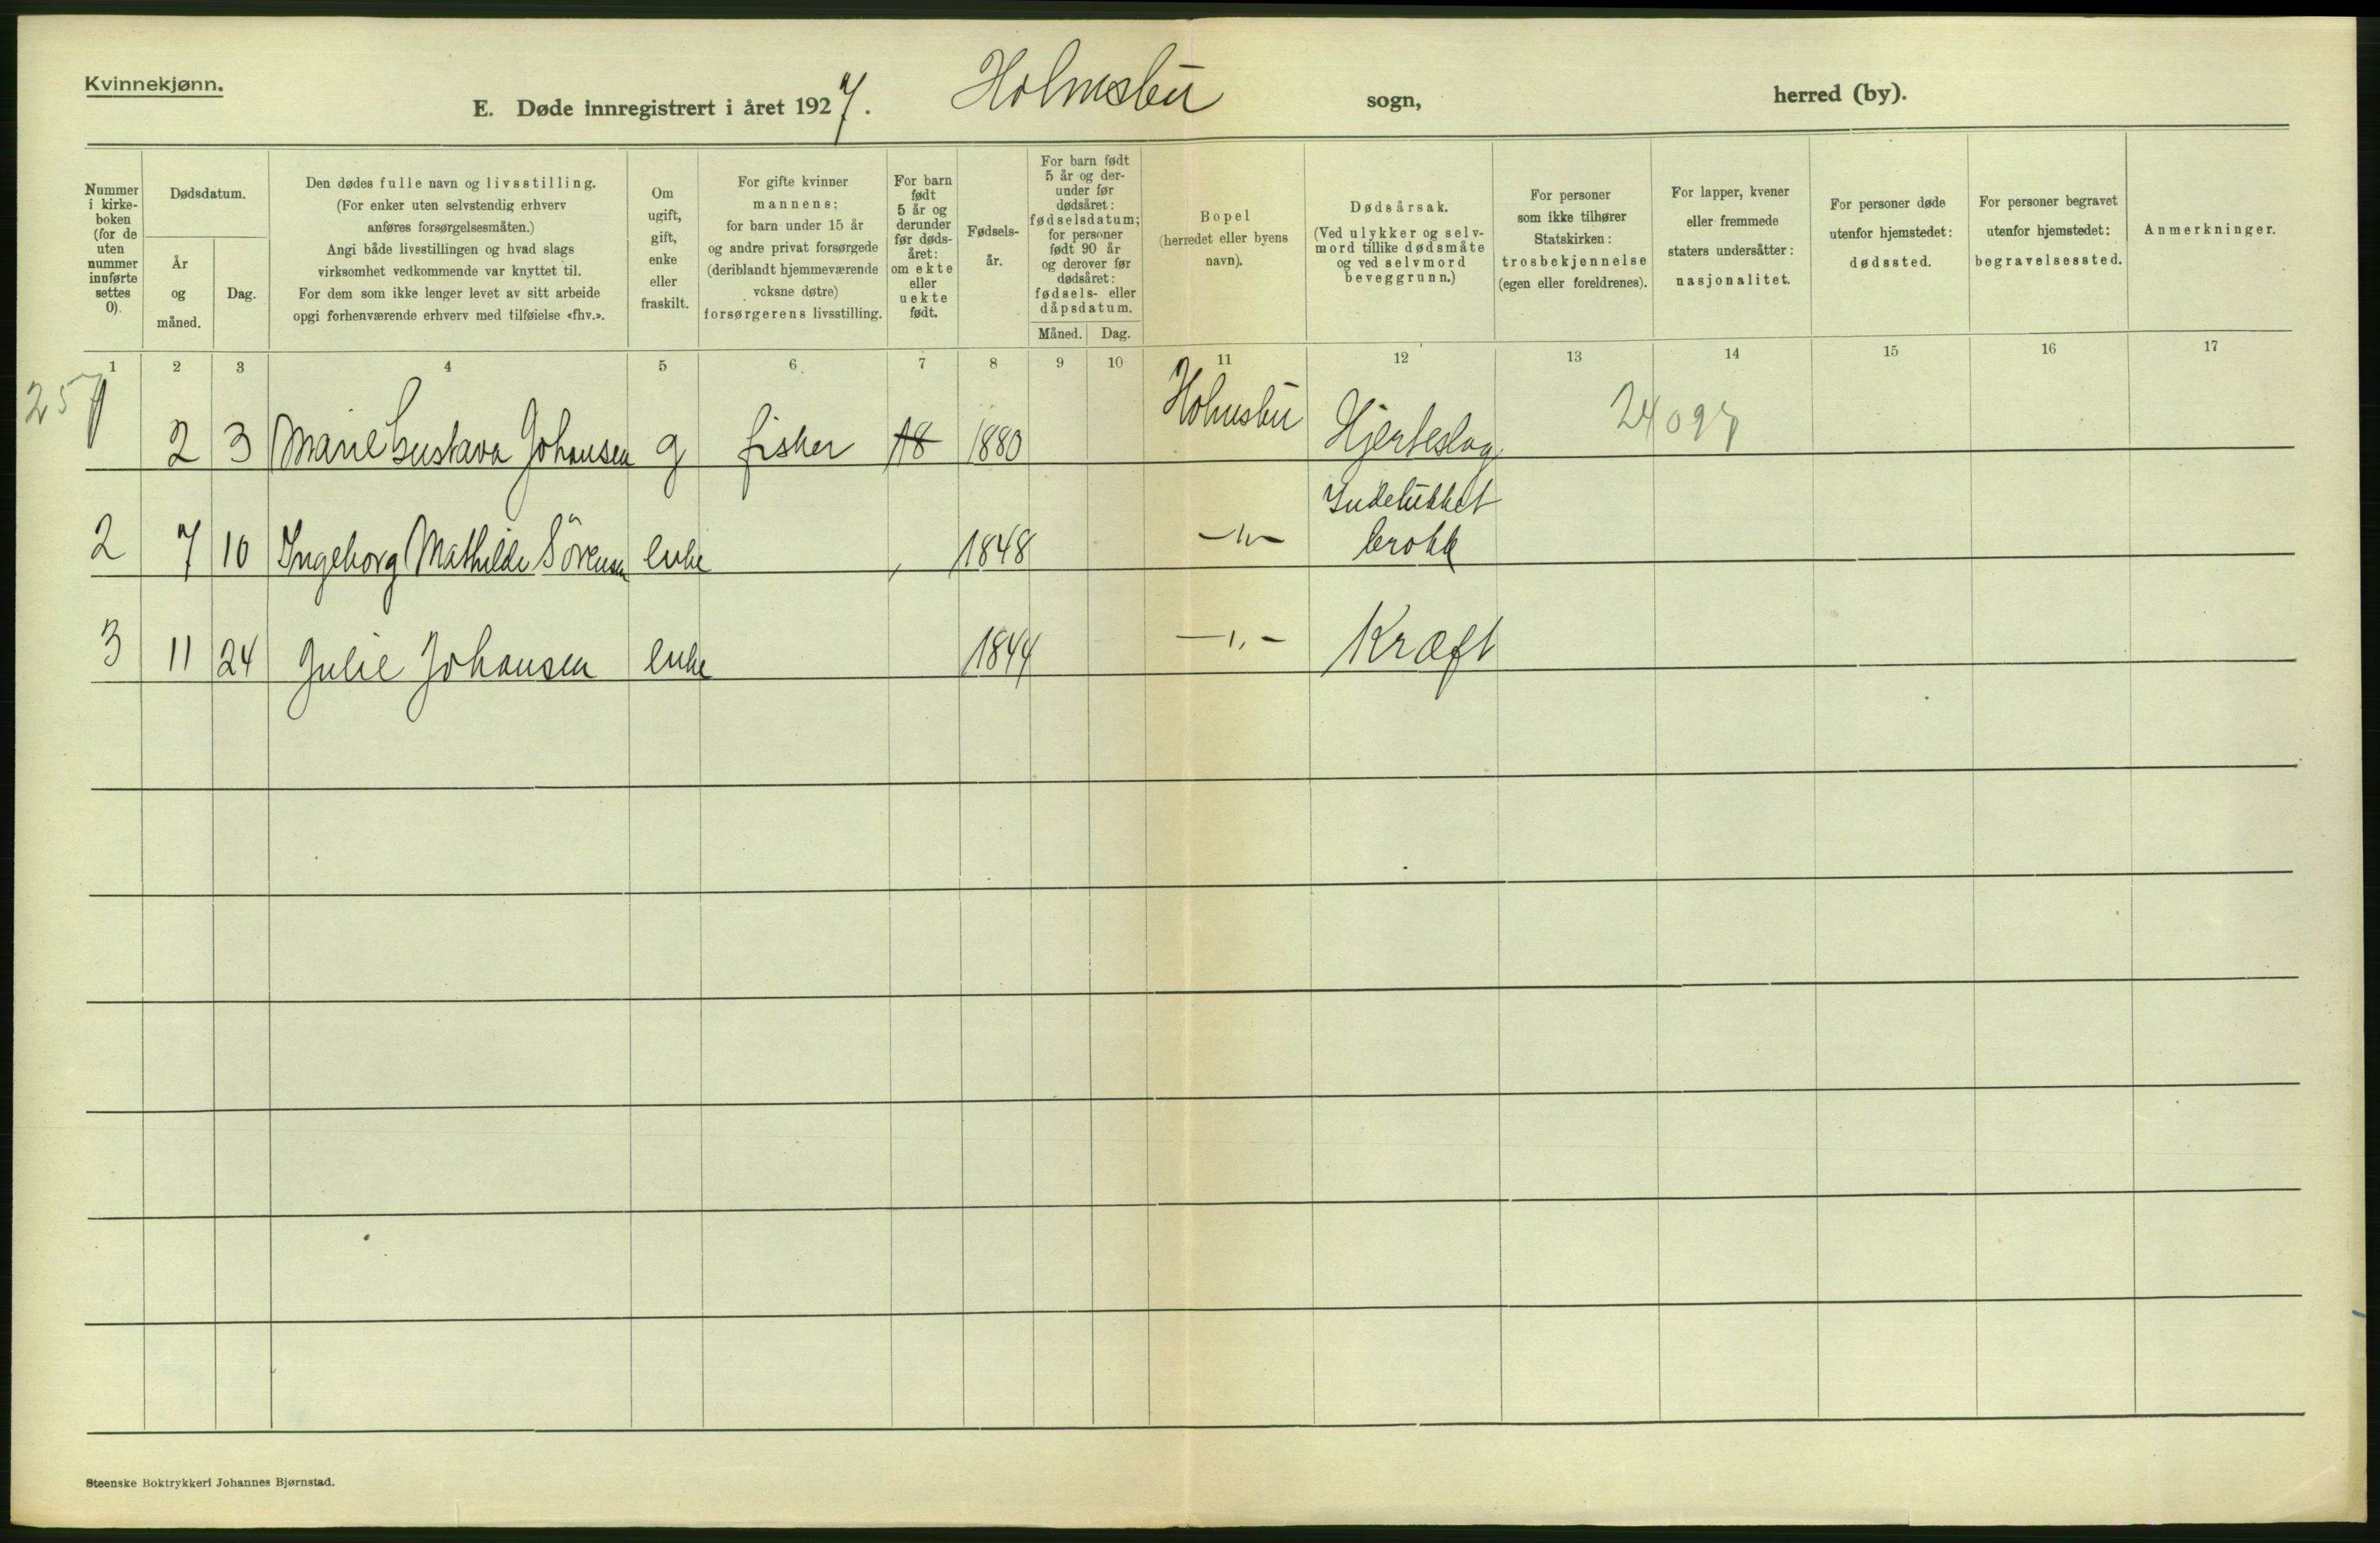 Kvinnekjønn.
E. Døde innregistrert i året 1927. Holmsbu sogn, herred (by).
Nummer i kirke-boken (for de uten nummer innførte settes 0).
Dødsdatum.
År og måned.
Dag.
Den dødes fulle navn og livsstilling.
(For enker uten selvstendig erhverv
anføres forsørgelsesmåten.)
Angi både livsstillingen og hvad slags
virksomhet vedkommende var knyttet til.
For dem som ikke lenger levet av sitt arbeide
opgi forhenværende erhverv med tilføielse «fhv.».
Om
ugift,
gift,
enke
eller
fraskilt.
For gifte kvinner
mannens;
for barn under 15 år
og andre privat forsørgede
(deriblandt hjemmeværende
voksne døtre)
forsørgerens livsstilling.
For barn
født
5 år og
derunder
før døds-
året:
om ekte
eller
uekte
født.
Fødsels-
år.
For barn født
5 år og der-
under før
dødsåret:
fødselsdatum;
for personer
født 90 år
og derover før
dødsåret:
fødsels- eller
dåpsdatum.
Måned. Dag.
Bopel
(herredet eller byens
navn).
Dødsårsak.
(Ved ulykker og selv-
mord tillike dødsmåte
og ved selvmord
beveggrunn.)
For personer
som ikke tilhører
Statskirken:
trosbekjennelse
(egen eller foreldrenes).
For lapper, kvener
eller fremmede
staters undersåtter:
nasjonalitet.
For personer døde
utenfor hjemstedet:
dødssted.
For personer begravet
utenfor hjemstedet:
begravelsessted.
Anmerkninger.
1 2 3 4 5 6 7 8 9 10 11 12 13 14 15 16 17
1 2 3 Marie Gustava Johansen g fisker 18 1880 Holmsbu Hjerteslag
2 7 10 Ingeborg Mathilde Sörensen enke 1848 -"- Indeklukket
brokk
3 11 24 Julie Johansen enke 1844 -"- Kræft
Steenske Boktrykkeri Johannes Bjørnstad.